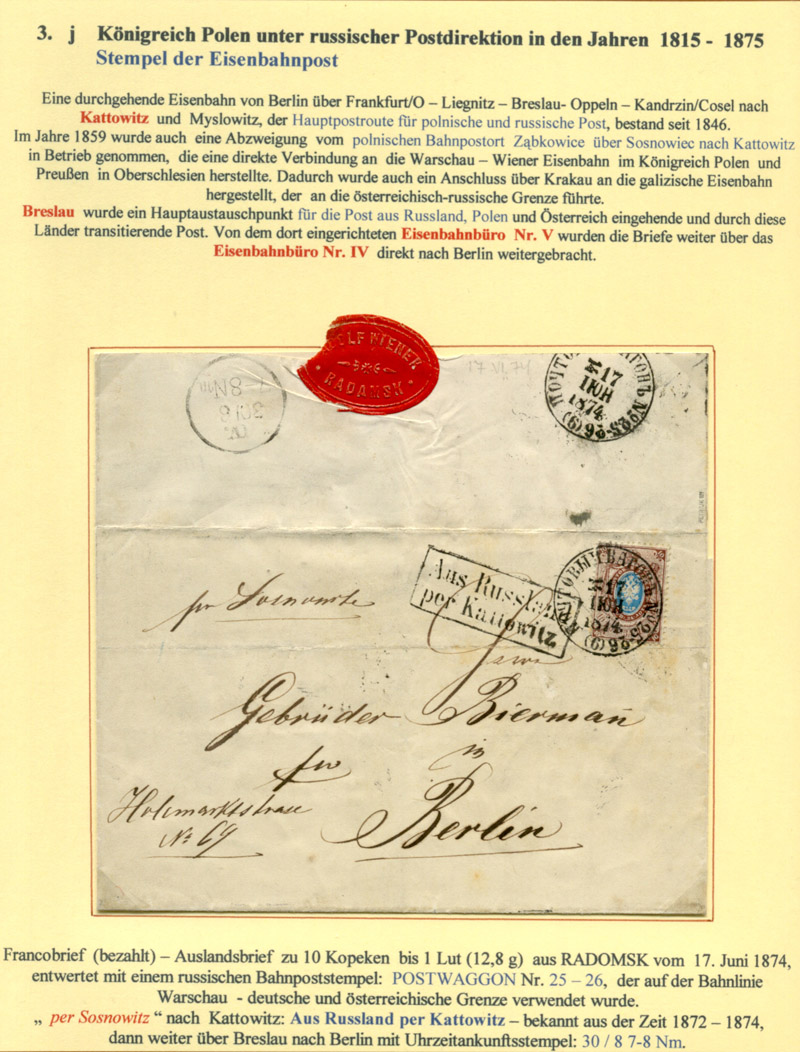 3. j Königreich Polen unter russischer Postdirektion in den Jahren 1815 - 1875
Stempel der Eisenbahnpost
Eine durchgehende Eisenbahn von Berlin über Frankfurt/O – Liegnitz – Breslau- Oppeln – Kandrzin/Cosel nach
Kattowitz und Myslowitz, der Hauptpostroute für polnische und russische Post, bestand seit 1846.
Im Jahre 1859 wurde auch eine Abzweigung vom polnischen Bahnpostort Ząbkowice über Sosnowiec nach Kattowitz
in Betrieb genommen, die eine direkte Verbindung an die Warschau – Wiener Eisenbahn im Königreich Polen und
Preußen in Oberschlesien herstellte. Dadurch wurde auch ein Anschluss über Krakau an die galizische Eisenbahn
hergestellt, der an die österreichisch-russische Grenze führte.
Breslau wurde ein Hauptaustauschpunkt für die Post aus Russland, Polen und Österreich eingehende und durch diese
Länder transitierende Post. Von dem dort eingerichteten Eisenbahnbüro Nr. V wurden die Briefe weiter über das
Eisenbahnbüro Nr. IV direkt nach Berlin weitergebracht.
WIENER
RADAMSK
17 VI 74
7-8 Nm
30 8
17
ІЮН
1874
№ 25-26
(9)
Aus Russland
per Kattowitz
ПОЧТОВЫЙ ВАГОНЪ № 25-26
17
ІЮН
1874
(9)
per Sosnowitz
Gebrüder Biermañ
in
Holzmarktstrasse
№ 69
Berlin
Francobrief (bezahlt) – Auslandsbrief zu 10 Kopeken bis 1 Lut (12,8 g) aus RADOMSK vom 17. Juni 1874,
entwertet mit einem russischen Bahnpoststempel: POSTWAGGON Nr. 25 – 26, der auf der Bahnlinie
Warschau - deutsche und österreichische Grenze verwendet wurde.
„ per Sosnowitz “ nach Kattowitz: Aus Russland per Kattowitz – bekannt aus der Zeit 1872 – 1874,
dann weiter über Breslau nach Berlin mit Uhrzeitankunftsstempel: 30 / 8 7-8 Nm.